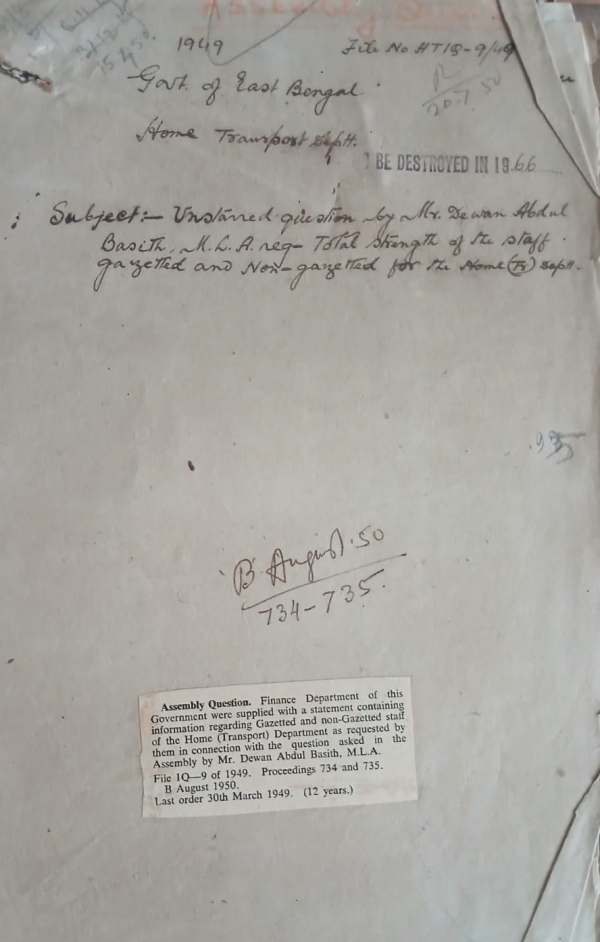 Assembly Question
1949
File No HT1Q-9/49
Govt. of East Bengal
20.7.50
15.4.50
Home Transport Deptt.
BE DESTROYED IN 1966
Subject:- Unstarred question by Mr. Dewan Abdul
Basith, M.L.A. reg- Total strength of the staff
gazetted and Non-gazetted for the Home (Tr) Deptt.
B August. 50
734-735.
Assembly Question. Finance Department of this
Government were supplied with a statement containing
information regarding Gazetted and non-Gazetted staff
of the Home (Transport) Department as requested by
them in connection with the question asked in the
Assembly by Mr. Dewan Abdul Basith, M.L.A.
File 1Q—9 of 1949. Proceedings 734 and 735.
B August 1950.
Last order 30th March 1949. (12 years.)